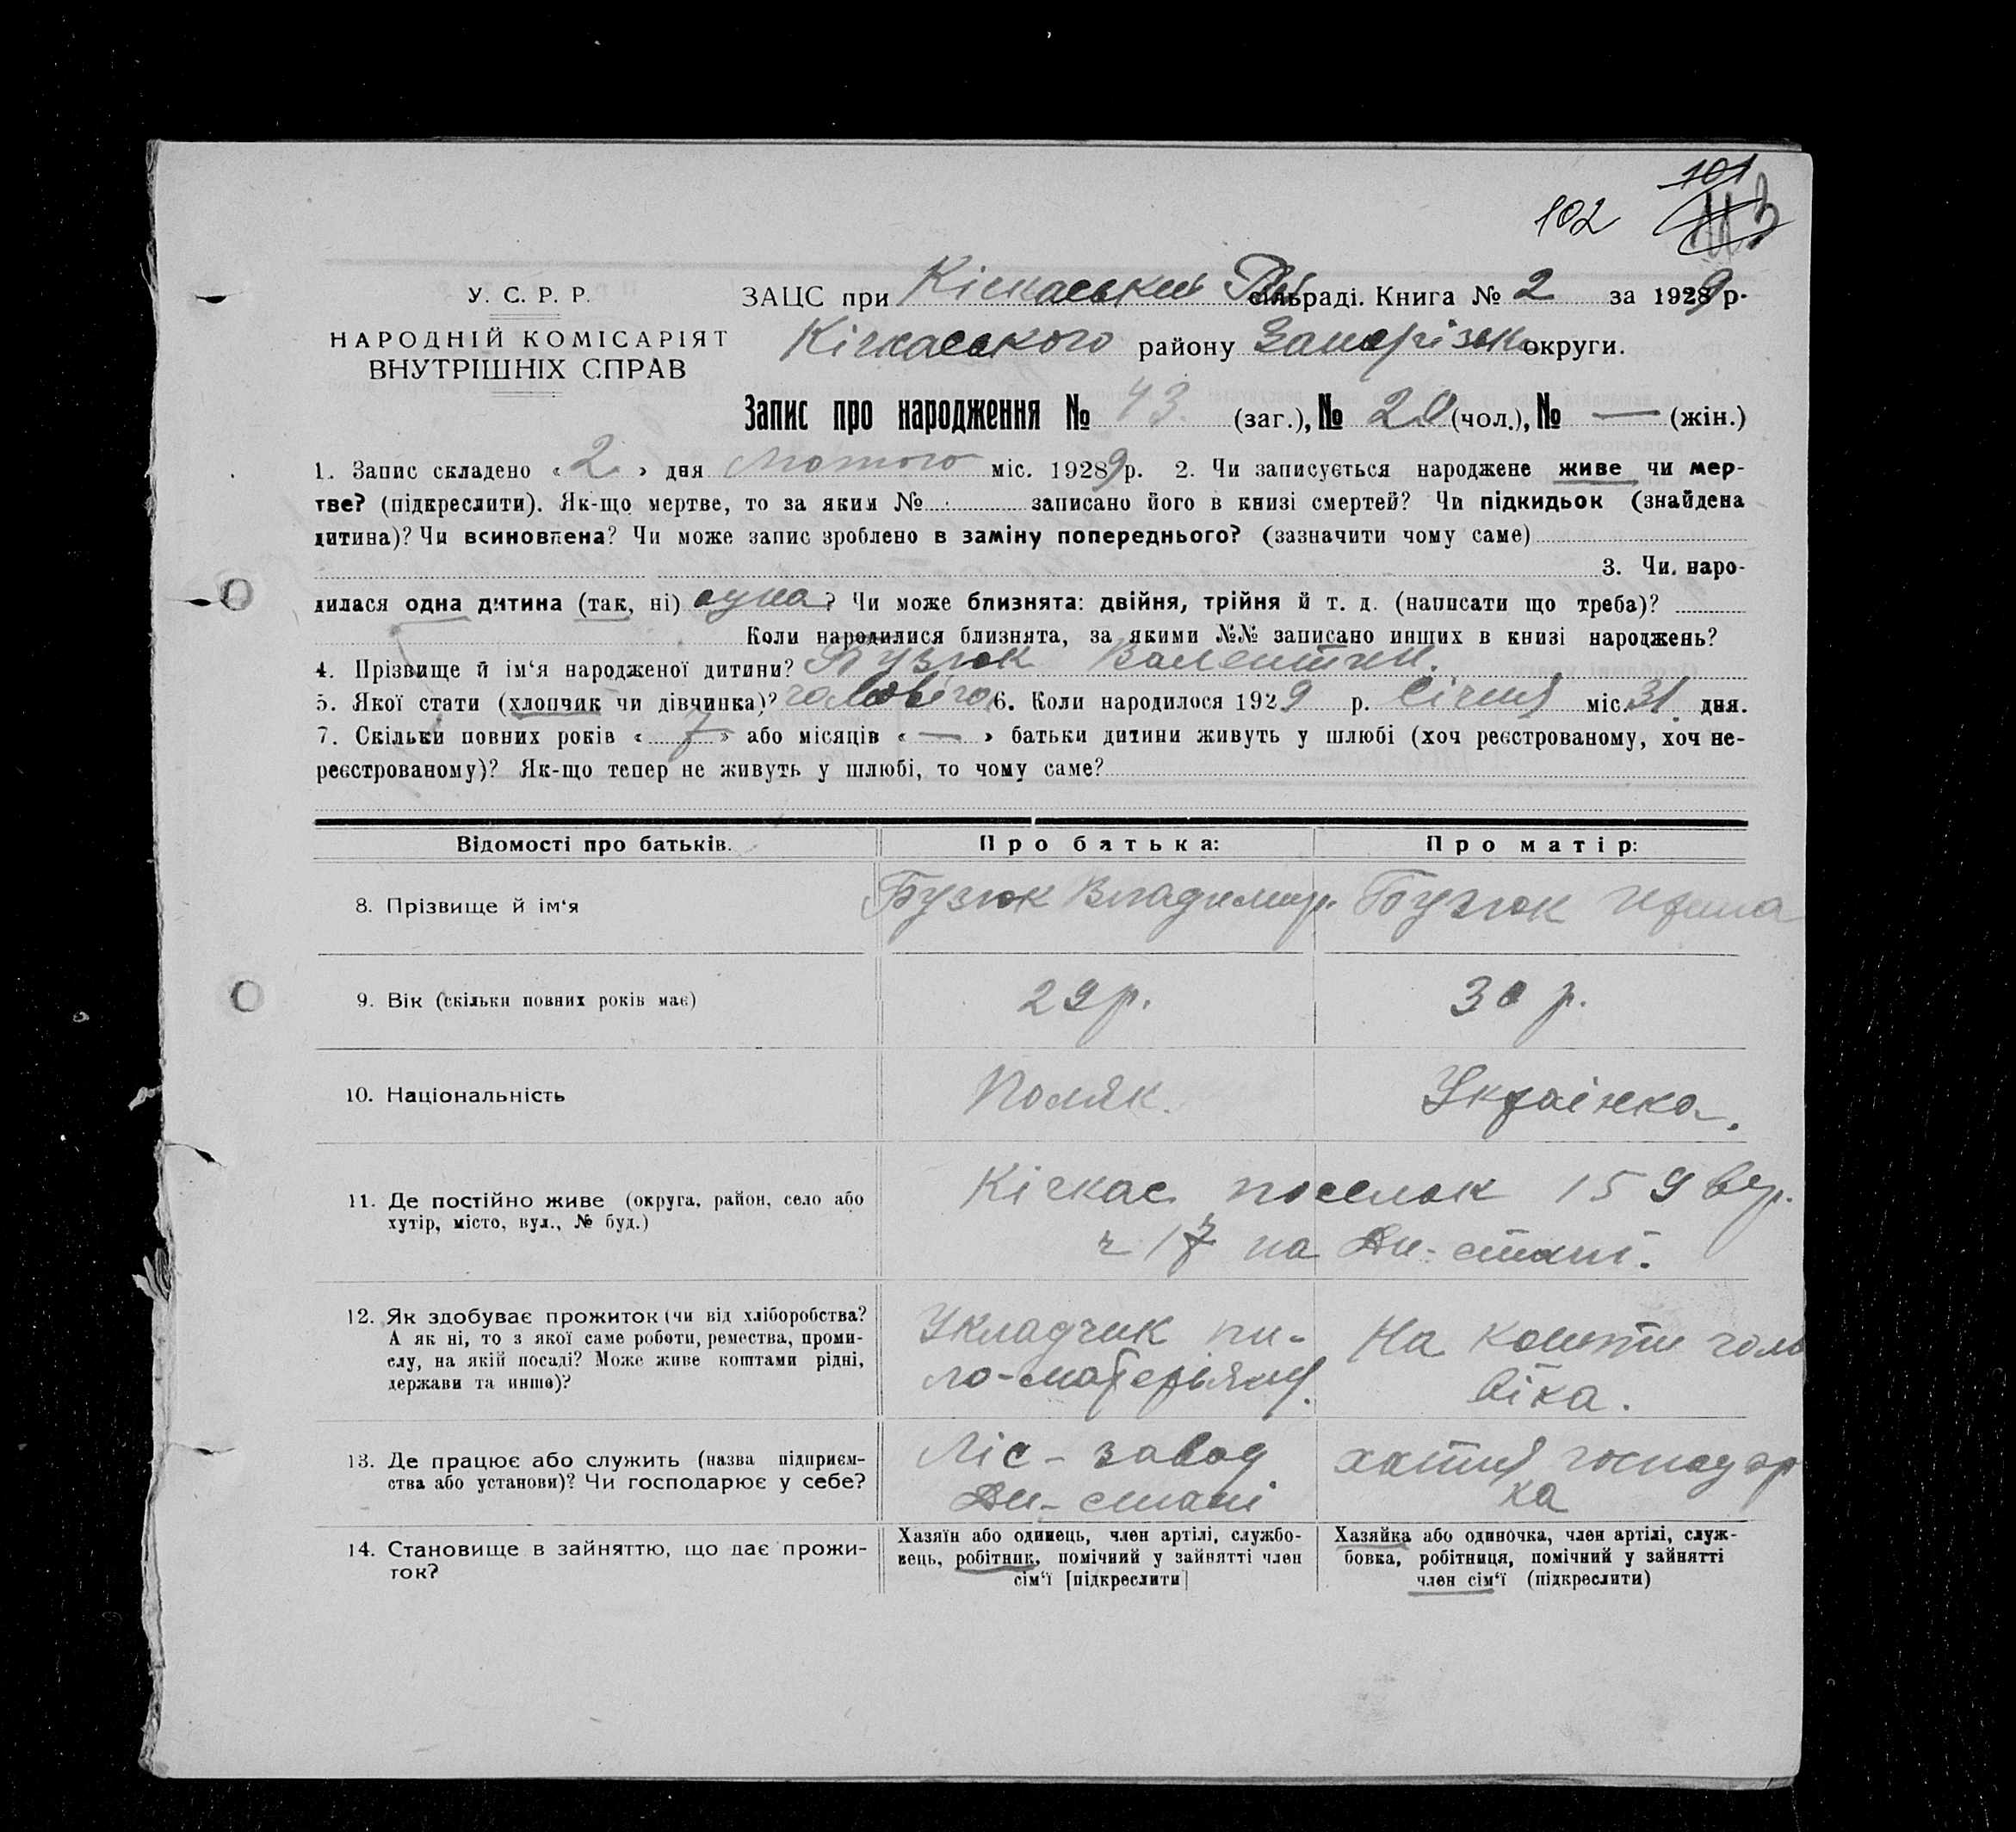 101
102
У. С. Р. Р.
НАРОДНІЙ КОМІСАРІЯТ
ВНУТРІШНІХ СПРАВ
ЗАЦС при Кічкаський сільраді. Книга № 2 за 1929 р.
Кічкаського району Запорізьк округи.
Запис про народження № 43. (заг.), № 20 (чол.), № — (жін.)
1. Запис складено «2» дня Лютого міс. 19289 р. 2. Чи записується народжене живе чи мер-
тве? (підкреслити). Як-що мертве, то за яким № записано його в книзі смертей? Чи підкидьок (знайдена
дитина)? Чи всиновлена? Чи може запис зроблено в заміну попереднього? (зазначити чому саме)
3. Чи наро-
дилася одна дитина (так, ні) одна? Чи може близнята: двійня, трійня й т. д. (написати що треба)?
Коли народилися близнята, за якими №№ записано инших в книзі народжень?
4. Прізвище й ім'я народженої дитини? Бузюк Валентин.
5. Якої стати (хлопчик чи дівчинка)? чоловічо 6. Коли народилося 1929 р. Січня міс. 31 дня.
7. Скільки повних років «7» або місяців «—» батьки дитини живуть у шлюбі (хоч реєстрованому, хоч не-
реєстрованому)? Як-що тепер не живуть у шлюбі, то чому саме?
Відомості про батьків. Про батька: Про матір:
8. Прізвище й ім'я Бузюк Владимир. Бузюк Ирина
9. Вік (скільки повних років має) 29 р. 30 р.
10. Національність Поляк. Українка.
11. Де постійно живе (округа, район, село або
хутір, місто, вул., № буд.)
Кічкас поселок 159 вер.
ч 17 на Дн-стані.
12. Як здобуває прожиток (чи від хліборобства?
А як ні, то з якої саме роботи, ремества, проми-
слу, на якій посаді? Може живе коштами рідні,
держави та инше)?
Укладчик пи-
ло-матеріялу.
На кошти чоло
віка.
13. Де працює або служить (назва підприєм-
ства або установи)? Чи господарює у себе?
Ліс-завод
Дн-стані
хатня господар
ка
14. Становище в зайняттю, що дає прожи-
ток?
Хазяїн або одинець, член артілі, службо-
вець, робітник, помічний у зайнятті член
сім'ї [підкреслити]
Хазяйка або одиночка, член артілі, служ-
бовка, робітниця, помічний у зайнятті
член сім'ї (підкреслити)